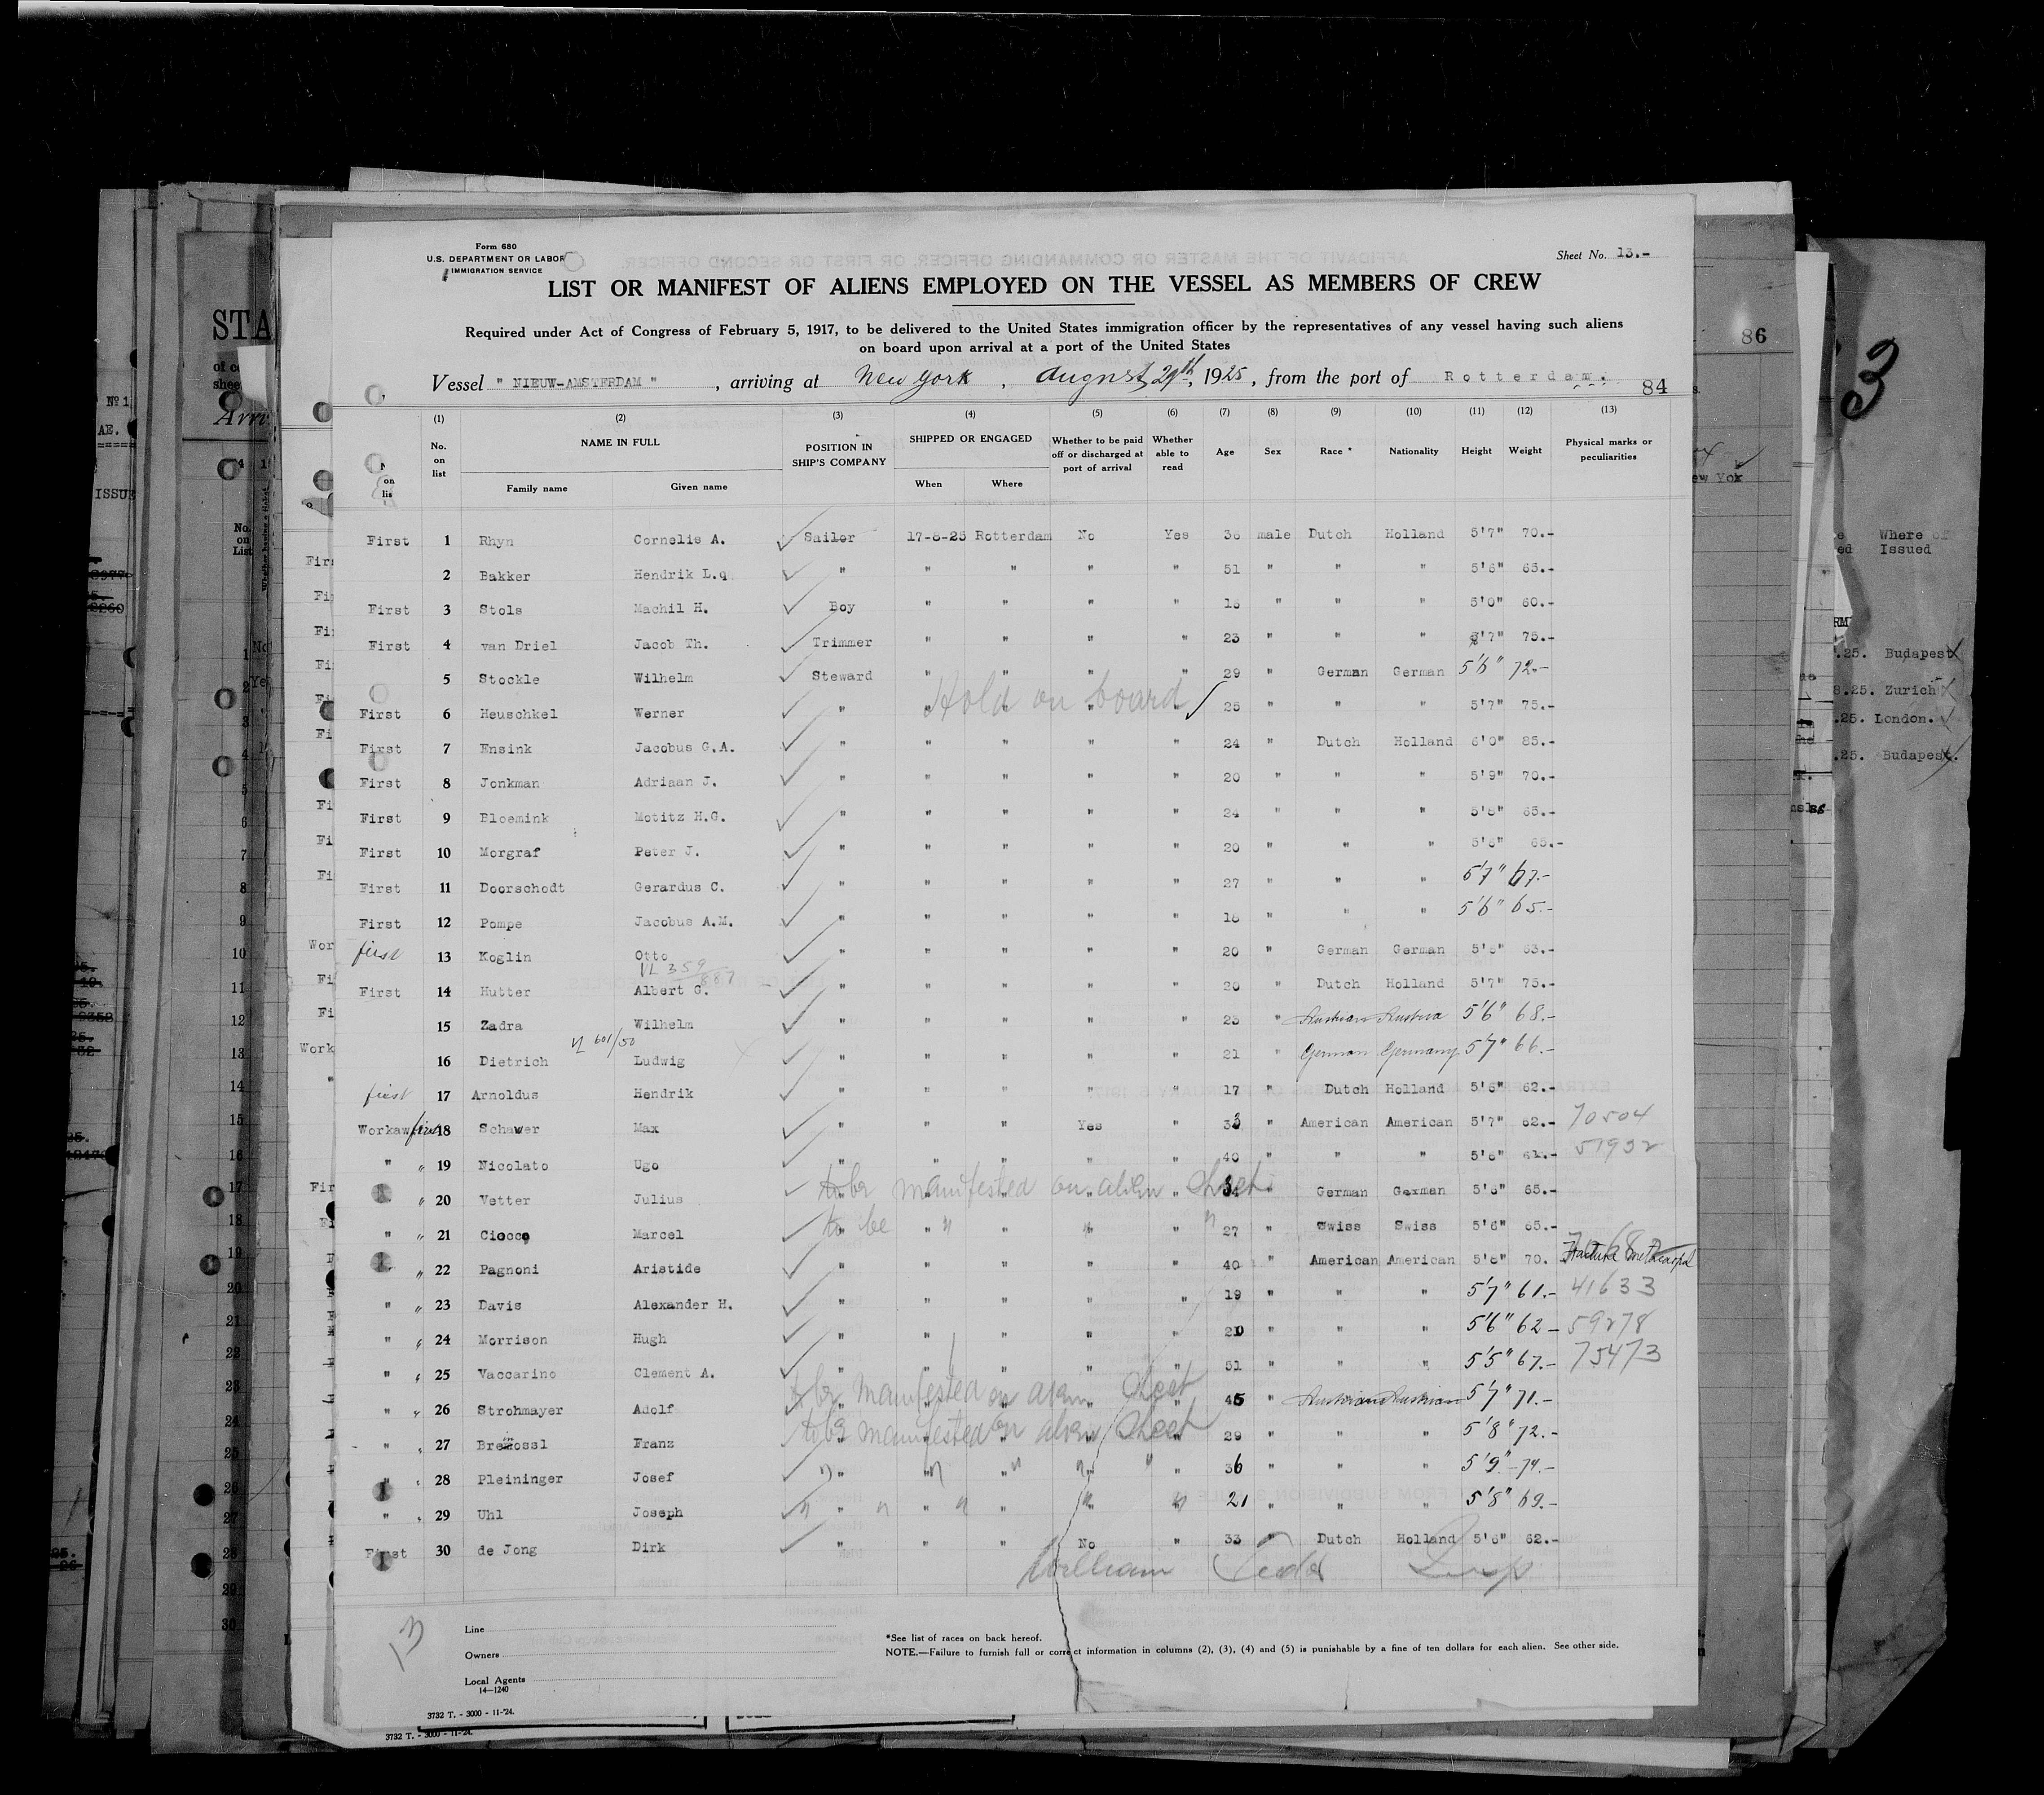 Form 680
U.S. DEPARTMENT OR LABOR
IMMIGRATION SERVICE
Sheet No. 13.-
LIST OR MANIFEST OF ALIENS EMPLOYED ON THE VESSEL AS MEMBERS OF CREW
Required under Act of Congress of February 5, 1917, to be delivered to the United States immigration officer by the representatives of any vessel having such aliens
on board upon arrival at a port of the United States
Vessel " NIEUW-AMSTERDAM " , arriving at New York , August 29th, 1925, from the port of Rotterdam. 84
(1) (2) (3) (4) (5) (6) (7) (8) (9) (10) (11) (12) (13)
No. on list NAME IN FULL Family name Given name POSITION IN SHIP'S COMPANY SHIPPED OR ENGAGED When Where Whether to be paid off or discharged at port of arrival Whether able to read Age Sex Race * Nationality Height Weight Physical marks or peculiarities
First 1 Rhyn Cornelis A. Sailor 17-8-25 Rotterdam No Yes 36 male Dutch Holland 5'7" 70.-
2 Bakker Hendrik L.q " " " " " 51 " " " 5'6" 65.-
First 3 Stols Machil H. Boy " " " " 16 " " " 5'0" 60.-
First 4 van Driel Jacob Th. Trimmer " " " " 23 " " " 5'7" 75.-
5 Stockle Wilhelm Steward " " " " 29 " German German 5'6" 72.-
Hold on board
First 6 Heuschkel Werner " " " " " 25 " " " 5'7" 75.-
First 7 Ensink Jacobus G.A. " " " " " 24 " Dutch Holland 6'0" 85.-
First 8 Jonkman Adriaan J. " " " " " 20 " " " 5'9" 70.-
First 9 Bloemink Motitz H.G. " " " " " 24 " " " 5'8" 65.-
First 10 Morgraf Peter J. " " " " " 20 " " " 5'6" 65.-
First 11 Doorschodt Gerardus C. " " " " " 27 " " " 5'7" 67.-
First 12 Pompe Jacobus A.M. " " " " " 18 " " " 5'6" 65.-
first 13 Koglin Otto " " " " " 20 " German German 5'6" 63.-
VL 359/887
First 14 Hutter Albert G. " " " " " 20 " Dutch Holland 5'7" 75.-
15 Zadra Wilhelm " " " " " 23 " Austrian Austria 5'6" 68.-
601/50
16 Dietrich Ludwig " " " " " 21 " German Germany 5'7" 66.-
first 17 Arnoldus Hendrik " " " " " 17 " Dutch Holland 5'6" 62.-
Workaw first 18 Schawer Max " " " Yes " 33 " American American 5'7" 62.- 70504
" " 19 Nicolato Ugo " " " " " 40 " " " 5'6" 61.- 51932
to be manifested on alien sheet
" " 20 Vetter Julius " " " " " 34 " German German 5'6" 65.-
to be " "
" " 21 Ciocco Marcel " " " " " 27 " Swiss Swiss 5'6" 65.-
" " 22 Pagnoni Aristide " " " " " 40 " American American 5'6" 70. Fracture metacarpal
" " 23 Davis Alexander H. " " " " " 19 " " " 5'7" 61.- 41633
" " 24 Morrison Hugh " " " " " 20 " " " 5'6" 62 - 59278
" " 25 Vaccarino Clement A. " " " " " 51 " " " 5'5" 67.- 75473
to be manifested on alien sheet
" " 26 Strohmayer Adolf " " " " " 45 " Austrian Austrian 5'7" 71.-
to be manifested on alien sheet
" " 27 Bremossl Franz " " " " " 29 " " " 5'8" 72.-
" " 28 Pleininger Josef " " " " " 36 " " " 5'9" 74.-
" " 29 Uhl Joseph " " " " " 21 " " " 5'8" 69.-
First 30 de Jong Dirk " " " No " 33 " Dutch Holland 5'6" 62.-
William
13
Line
Owners
Local Agents
14—1240
*See list of races on back hereof.
NOTE.—Failure to furnish full or correct information in columns (2), (3), (4) and (5) is punishable by a fine of ten dollars for each alien. See other side.
3732 T. - 3000 - 11-'24.
3732 T. - 3000 - 11-'24.
STA
Arri
ISSUE
86
3
Where of
Issued
.25. Budapest
8.25. Zurich
.25. London.
.25. Budapest.